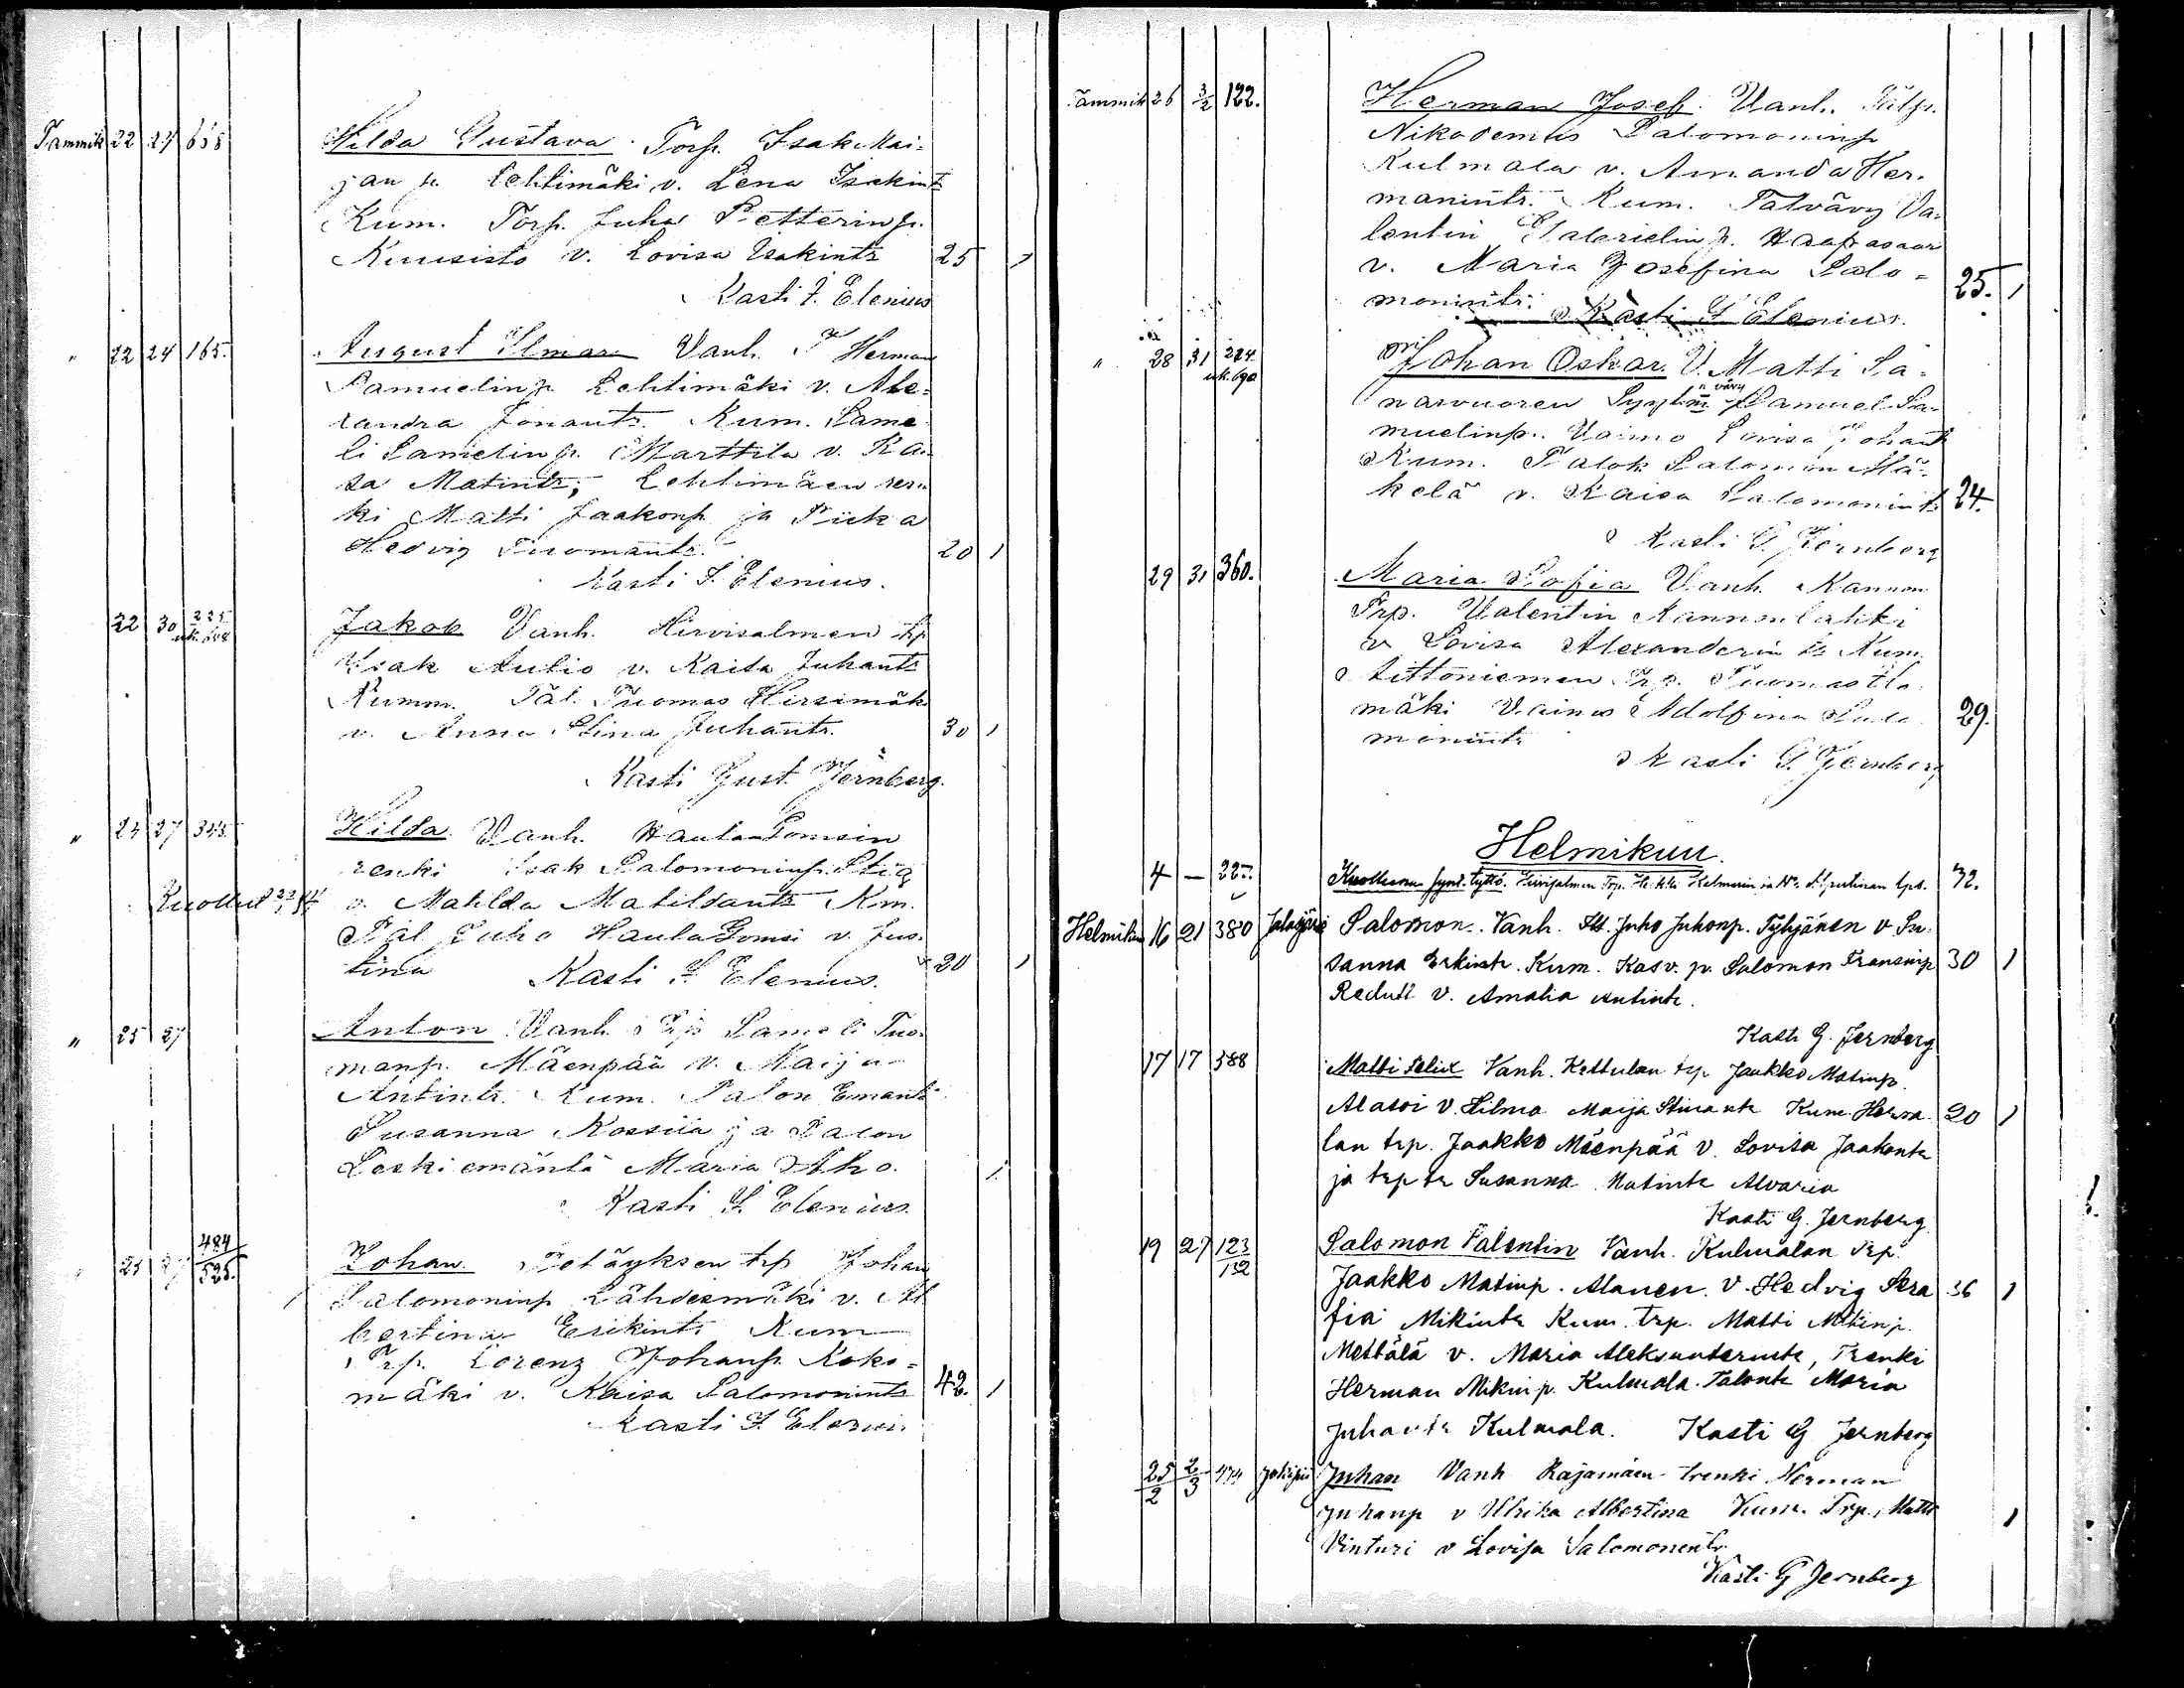 Tammik 22 24 658 Hilda Gustava. Torp. Isak Mai-
jan p. Lehtimäki v. Lena Isakint
Kum. Torp. Juha Petterinp.
Kuusisto v. Lovisa Isakintr 25 1
Kasti I. Elenius
" 22 24 165. August Ilmar Vanh. Herman
Samuelinp. Lehtimäki v. Ale-
xandra Jonantr. Kum. Same
li Samelinp. Marttila v. Kai
sa Matintr, Lehtimäen ren
ki Matti Jaakonp. ja Piika
Hedvig Tuomantr. 20 1
Kasti I. Elenius.
22 30 225 Jakob Vanh. Hirvisalmen trp
Isak Aulio v. Kaisa Juhantr
Kumm. Tal. Tuomas Hirsimäki
v. Anna Stina Juhantr. 30 1
Kasti Gust. Jernberg.
" 24 27 343 Hilda. Vanh. Hautaluomin
renki Isak Salomoninp. Stig
Kuollut v. Matilda Matildantr Kum.
Tal Juho v. Jus-
tina Kasti I. Elenius. 20 1
" 25 27 Anton Vanh. Trp Sameli Tuo-
manp. Mäenpää v. Maija
Antintr. Kum. Talon Emäntä
Susanna Kossila ja Talon
Leski emäntä Maria Aho. 1
Kasti I. Elenius
25 27 484/525. Johan. Petäyksen trp Johan
Salomoninp Lähdesmäki v. Al
bertina Erikintr Kum
Trp. Lorenz Johanp. Koko-
mäki v. Kaisa Salomonintr 42. 1
Kasti I. Elenius
Tammik 26 3/2 122. Herman Josef. Vanh.
Nikodemus Salomoninp
Kulmala v. Amanda Her-
manintr. Kum. Talvävy Va-
lentin Gabrielinp. Haapasaar
v. Maria Josefina Salo-
monintr. 25. 1
Kasti I Elenius.
" 28 31 224 uk. 690 Johan Oskar. V. Matti Sa-
narvuoren vävy Samuel Sa-
muelinp. Vaimo Lovisa Johant
Kum. Talok Salomon Mä-
kelä v. Kaisa Salomonintr 24.
Kasti G. Jernberg
29 31 360. Maria Sofia Vanh. Kannon
Trp. Valentin Kannonlahti
v Lovisa Alexanderin tr Kum.
Aittoniemen Trp. Tuomas
mäki Vaimo Adolfina Salo
monintr 29.
Kasti G. Jernberg
Helmikuu.
4 — 22 Kuolleena synt. tyttö. 42.
Helmikuu 16 21 380 Jalasjärvi Salomon. Vanh. Its. Juho Juhonp. Tyhjänen v Su-
sanna Erkintr. Kum. Kasv. p. Salomon Fransinp 30 1
Redutt v. Amalia Antintr.
Kasti G. Jernberg
17 17 388 Matti Felix Vanh. Kettulan trp Jaakko Matinp.
Alasoi V. Hilma Maija Stinantr Kum. Herra 20 1
lan trp. Jaakko Mäenpää V. Lovisa Jaakontr
ja trp tr Susanna Matintr Alvaria
Kasti G. Jernberg
19 27 123/132 Salomon Valentin Vanh. Kulmalan Trp.
Jaakko Matinp. Alanen. V. Hedvig Sera 36 1
fia Mikintr Kum. trp. Matti Matinp.
Mettälä v. Maria Aleksanterintr, Trenki
Herman Mikinp. Kulmala. Talontr Maria
Juhantr Kulmala. Kasti G Jernberg
25/2 2/3 474 Juhan Vanh Rajamäen trenki Herman
Juhanp v Ulrika Albertina Kum. Trp. Matti 1
Vinturi v Lovisa Salomonentr
Kasti G Jernberg